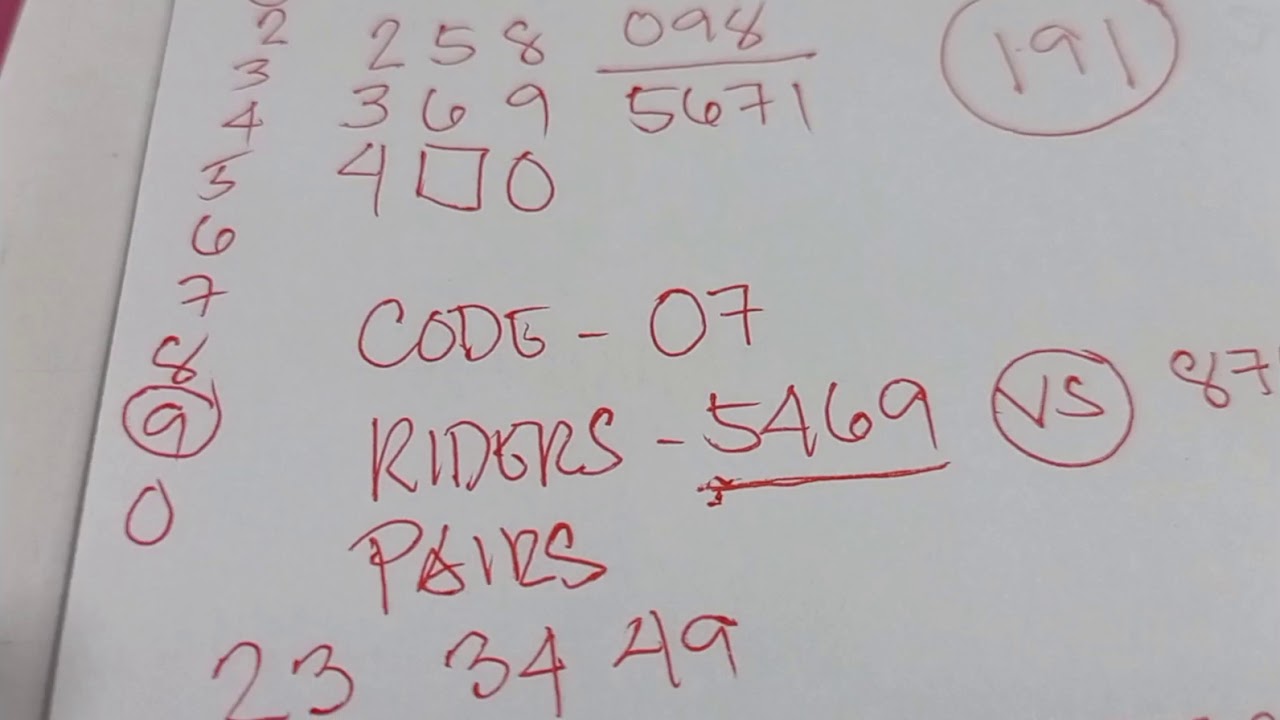 2 258 098 191
3 369 5671
4 4□0
5
6
7 CODE - 07
8
9 RIDERS - 5469 VS 87
0
PAIRS
23 34 49